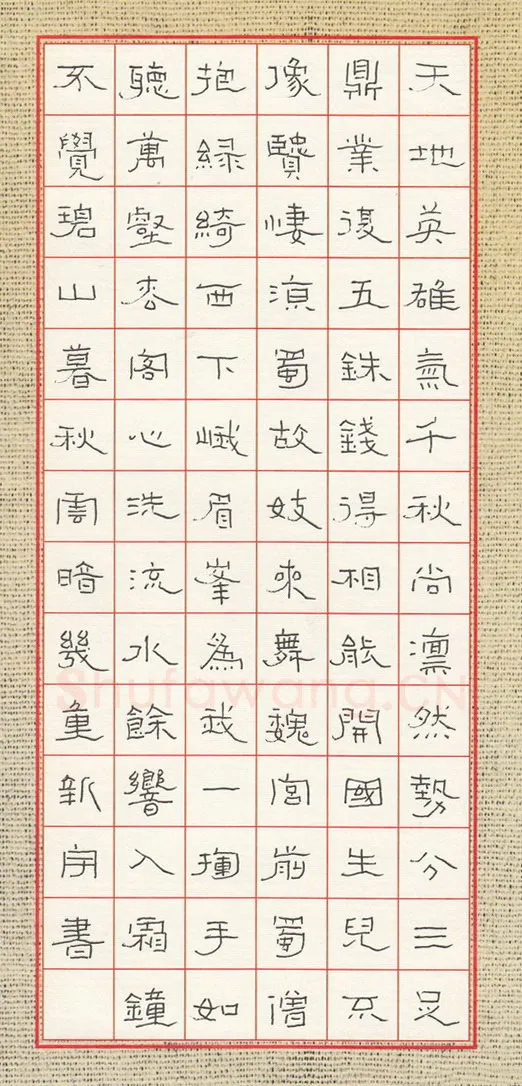 天地英雄氣千秋尚凛然勢分三足
鼎業復五銖錢得相能開國生兒不
像賢悽涼蜀故妓來舞魏宮前蜀僧
抱緑綺西下峨眉峯為我一揮手如
聽萬壑枩客心洗流水餘響入霜鐘
不覺碧山暮秋雲暗幾重新宇書
Shufawang.CN